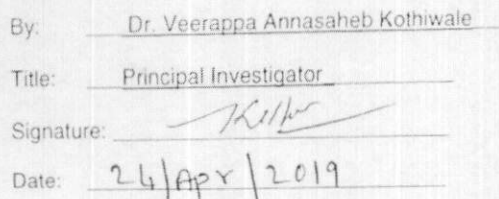 By: Dr. Veerappa Annasaheb Kothiwale
Title: Principal Investigator
Signature:
Date: 24/Apr/2019